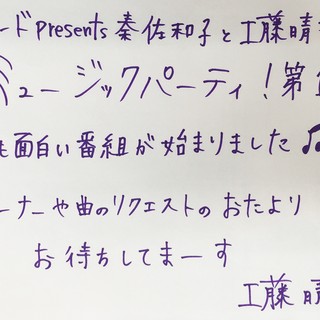 ード presents 秦佐和子と工藤晴
ミュージックパーティ！第
も面白い番組が始まりました♫
ーナーや曲のリクエストのおたより
お待ちしてまーす
工藤晴